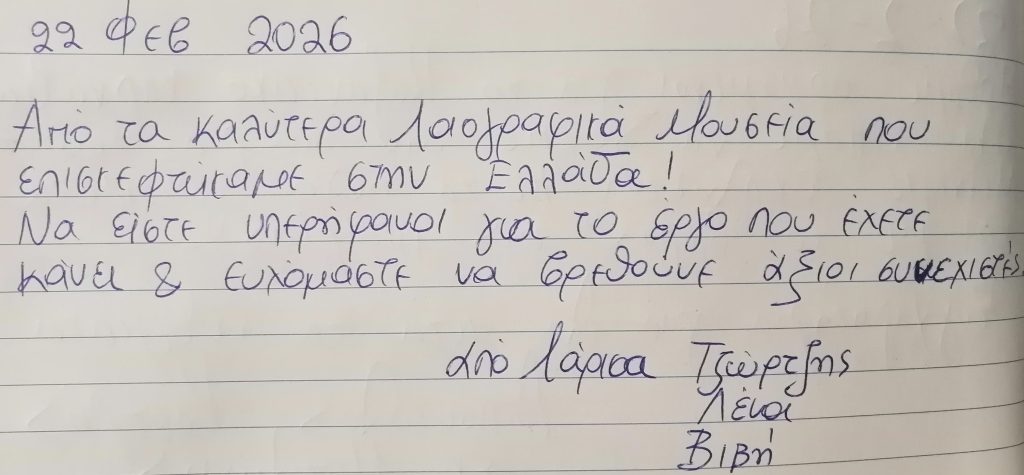 22 Φεβ 2026
Από τα καλύτερα Λαογραφικά Μουσεία που
επισκεφτήκαμε στην Ελλάδα!
Να είστε υπερήφανοι για το έργο που έχετε
κάνει & ευχόμαστε να βρεθούνε άξιοι συνεχιστές.
από Λάρισα Τζώρτζης
Λένα
Βιβή